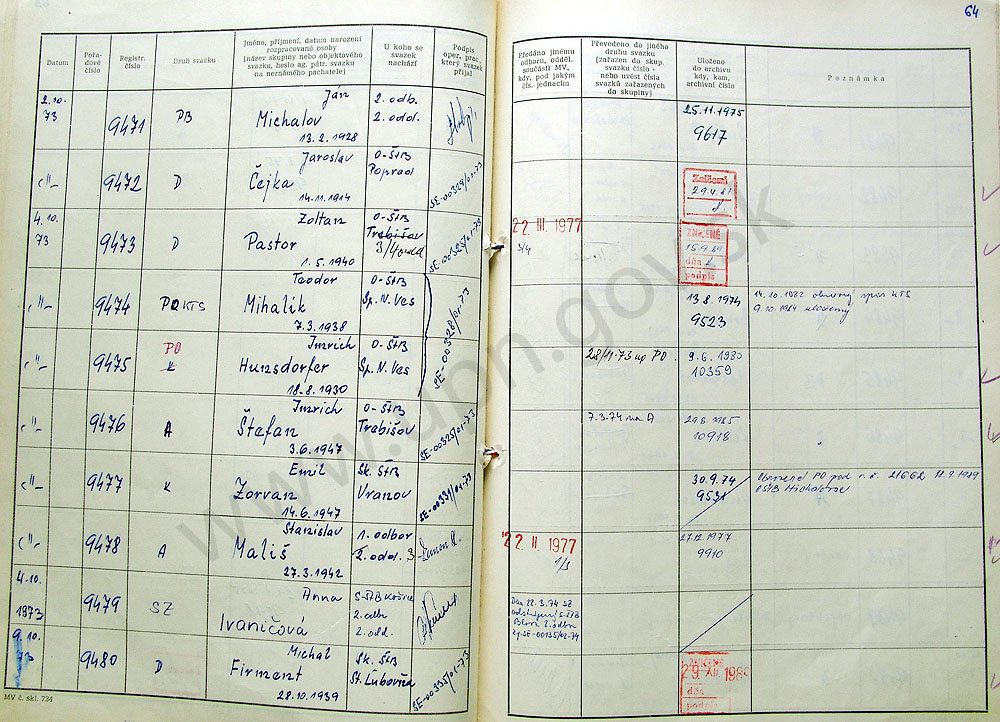 64
Datum
Pořadové číslo
Registr. číslo
Druh svazku
Jméno, příjmení, datum narození
rozpracované osoby
(název skupiny nebo objektového
svazku, heslo ag. pátr. svazku
na neznámého pachatele)
U koho se
svazek
nachází
Podpis
oper. prac.,
který svazek
přijal
Předáno jinému
odboru, odděl.
součásti MV,
kdy, pod jakým
čís. jednacím
Převedeno do jiného
druhu svazku
(zařazen do skup.
svazku číslo -
nebo uvést čísla
svazků zařazených
do skupiny)
Uloženo
do archivu
kdy, kam,
archivní číslo
Poznámka
2.10.
73
9471
PB
Jan
Michalov
13.2.1928
2. odb.
2. odd.
25.11.1975
9617
-"-
9472
D
Jaroslav
Čejka
14.11.1914
O-ŠtB
Poprad
SE-00329/01-73
Zničení
4.10.
73
9473
D
Zoltan
Pastor
1.5.1940
O-ŠtB
Trebišov
3/4 odd
SE-00325/01-73
22. III. 1977
3/4
ZNIČENÉ
dňa
podpis
-"-
9474
PO KTS
Teodor
Mihalik
7.3.1938
O-ŠtB
Sp. N. Ves
SE-00328/01-73
13.8.1974
9523
14.10.1982 obnovený spis KTS
9.10.1984 uložený
-"-
9475
PO
K
Imrich
Hunsdorfer
18-8-1930
O-ŠtB
Sp. N. Ves
28/11-73 na PO
9.6.1980
10359
-"-
9476
A
Imrich
Štefan
3.6.1947
O-ŠtB
Trebišov
SE-00325/01-73
7.3.74 na A
10918
-"-
9477
K
Emil
Zorvan
14.6.1947
Sk. ŠtB
Vranov
SE-00331/01-73
30.9.74
9531
Obnovené PO pod r.č. 21662 11.9.1989
OŠtB Michalovce
-"-
9478
A
Stanislav
Mališ
27.3.1942
1. odbor
2. odd.
22. II. 1977
1/3
27.12.1977
9910
4.10.
1973
9479
SZ
Anna
Ivaničová
S-ŠtB Košice
2. odbr
2. odd.
Dňa 22.3.74 SZ
odstúpen/S-ŠtB
2. odbr
SE-00135/02-74
9.10.
73
9480
D
Michal
Firment
28.10.1939
Sk. ŠtB
St. Ľubovňa
SE-00335/01-73
29. XII. 198
dňa
podpis
MV č. skl. 734
www.upn.gov.sk